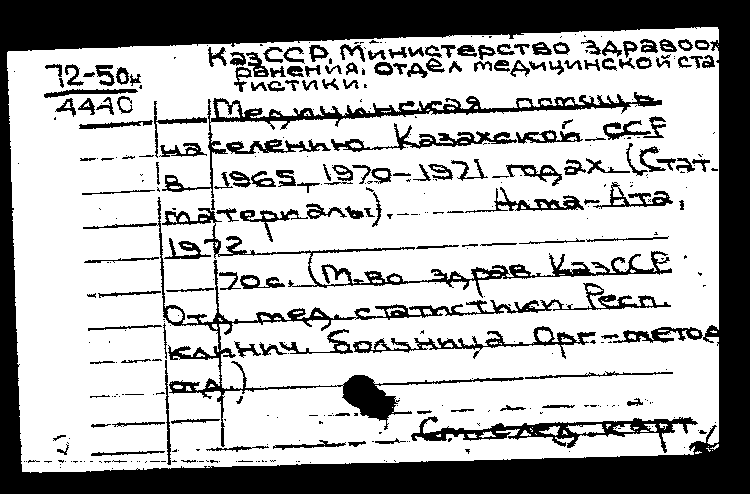 КазССР. Министерство здравоох-
72-50н
ранения. Отдел медицинской ста-
тистики.
4440
Медицинская помощь
населению Казахской ССР
в 1965, 1970-1971 годах. (Стат.
материалы). Алма-Ата,
1972.
70 с. (М-во здрав. КазССР
Отд. мед. статистики. Респ.
клинич. больница. Орг-метод
отд.)
См. след. карт.